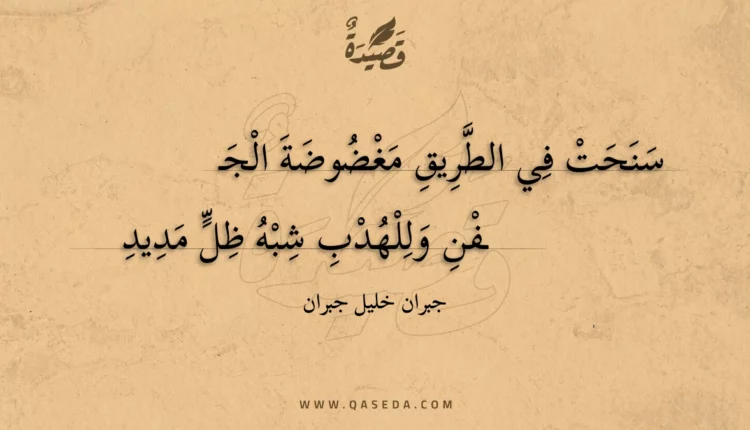 قَصِيدَةٌ
سَنَحَتْ فِي الطَّرِيقِ مَغْضُوضَةَ الْجَـ
ـفْنِ وَلِلْهُدْبِ شِبْهُ ظِلٍّ مَدِيدِ
جبران خليل جبران
WWW.QASEDA.COM